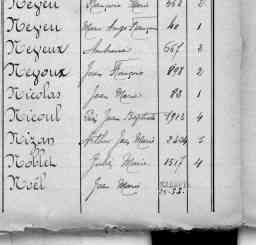 Neyeu François Marie 562 2
Neyeu Marc Ange François 40 1
Neyeux Ambroise 557 3
Neyoux Jean François 898 2
Nicolas Jean Marie 83 1
Nicoul Jean Baptiste 1903 4
Nizan Arthur Jean Marie 5
Noblet Jules Marie 1517 4
Noël Jean Marie